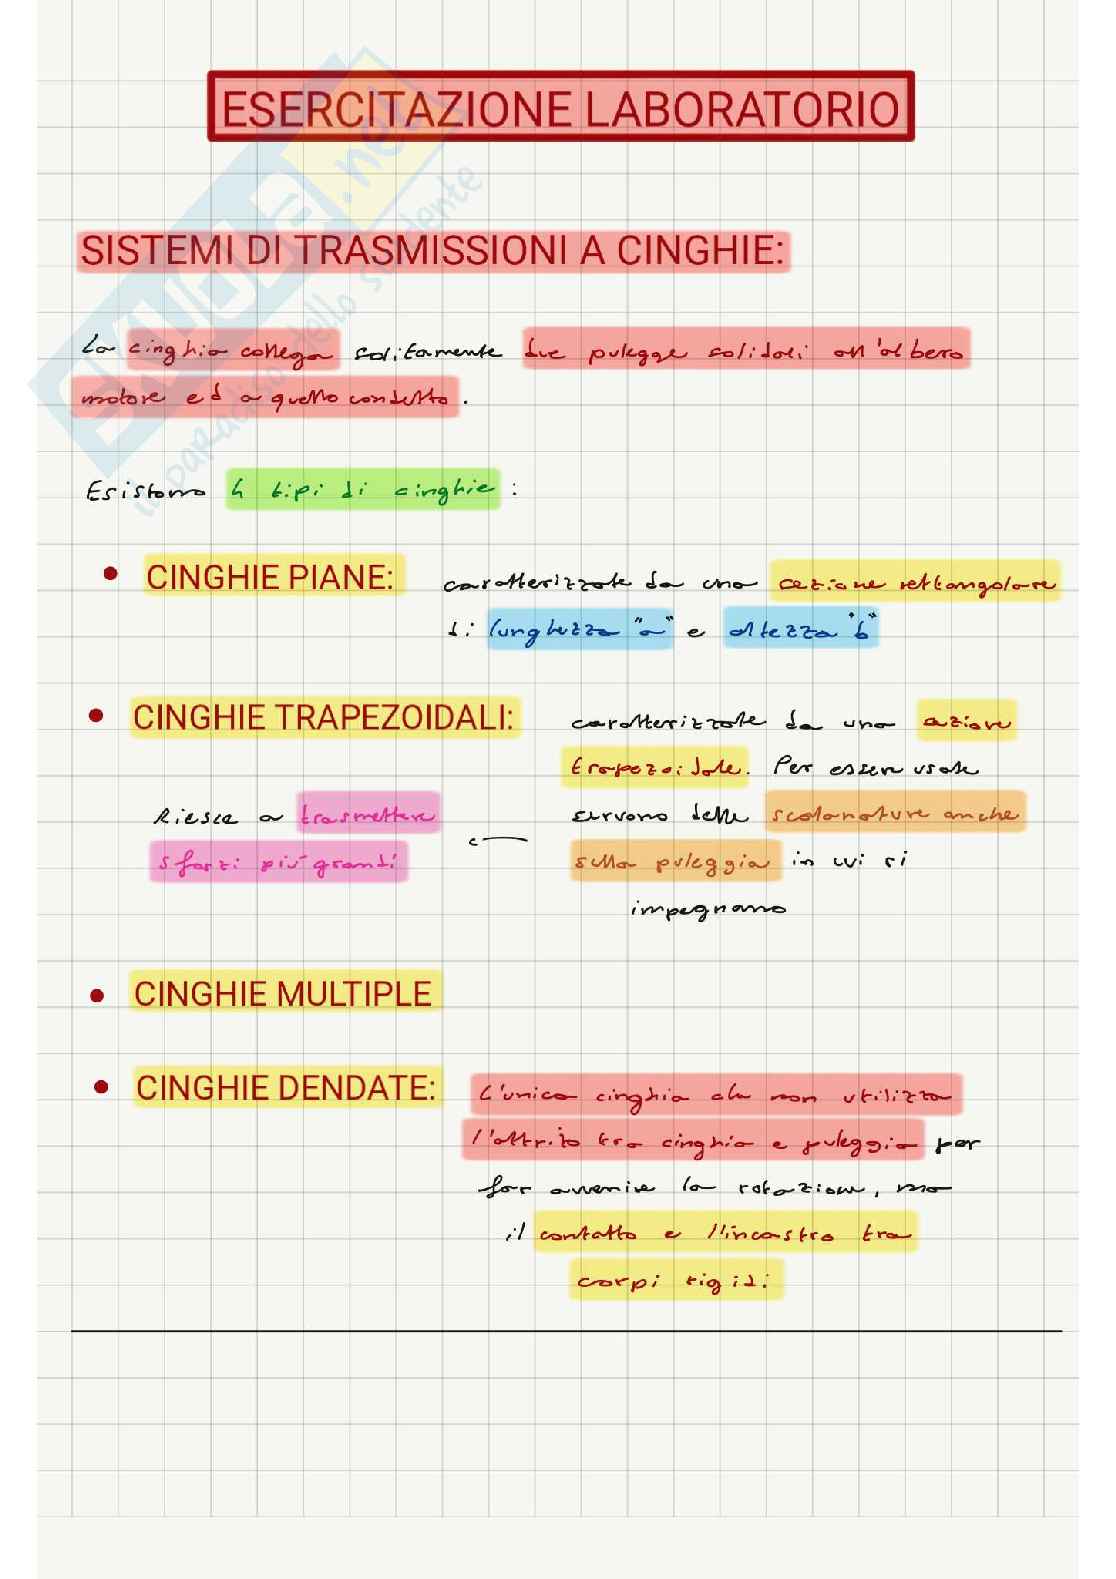 ESERCITAZIONE LABORATORIO
SISTEMI DI TRASMISSIONI A CINGHIE:
La cinghia collega solitamente due pulegge solidali all'albero
motore ed a quello condotto.
Esistono 4 tipi di cinghie:
• CINGHIE PIANE: caratterizzate da una sezione rettangolare
di lunghezza "a" e altezza "b"
• CINGHIE TRAPEZOIDALI: caratterizzate da una azione
trapezoidale. Per essere usate
Riesce a trasmettere
servono delle scalanature anche
sforzi più grandi
sulla puleggia in cui si
impegnano
• CINGHIE MULTIPLE
• CINGHIE DENDATE: L'unica cinghia che non utilizza
l'attrito tra cinghia e puleggia per
far avvenire la rotazione, ma
il contatto e l'incastro tra
corpi rigidi
SKUOLA.net
il paradiso dello studente